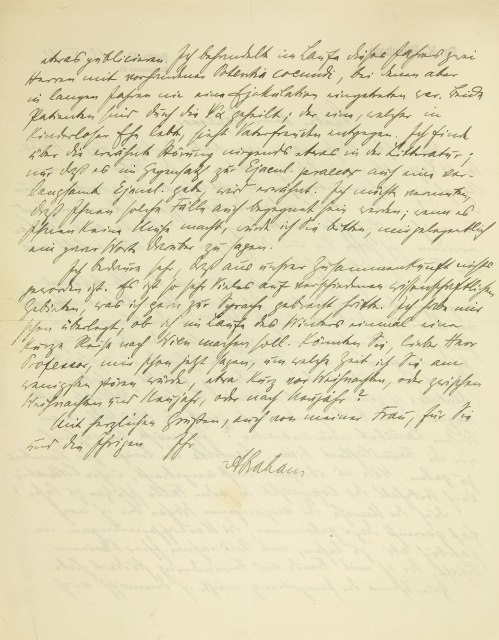 etwas publicieren. Ich behandelte im Laufe dieses Jahres zwei
Herren mit vorhandener Potentia coeundi, bei denen aber
in langen Jahren nie eine Ejakulation eingetreten war. Beide
Patienten sind durch die ΨA geheilt; der eine, welcher in
kinderloser Ehe lebte, sieht Vaterfreuden entgegen. Ich finde
über die erwähnte Störung nirgends etwas in der Litteratur;
nur daß es im Gegensatz zur Ejacul. praecox auch eine ver-
langsamte Ejacul. gebe, wird erwähnt. Ich möchte vermuten,
daß Ihnen solche Fälle auch begegnet sein werden; wenn es
Ihnen keine Mühe macht, würde ich Sie bitten, mir gelegentlich
ein paar Worte darüber zu sagen.
Ich bedaure sehr, daß aus unsrer Zusammenkunft nichts
geworden ist. Es ist so sehr Vieles auf verschiedenen wissenschaftlichen
Gebieten, was ich gern zur Sprache gebracht hätte. Ich habe mir
schon überlegt, ob ich im Laufe des Winters einmal eine
kurze Reise nach Wien machen soll. Könnten Sie, lieber Herr
Professor, mir schon jetzt sagen, um welche Zeit ich Sie am
wenigsten stören würde, etwa kurz vor Weihnachten, oder zwischen
Weihnachten und Neujahr, oder nach Neujahr?
Mit herzlichen Grüßen, auch von meiner Frau, für Sie
und die Ihrigen Ihr
Abraham